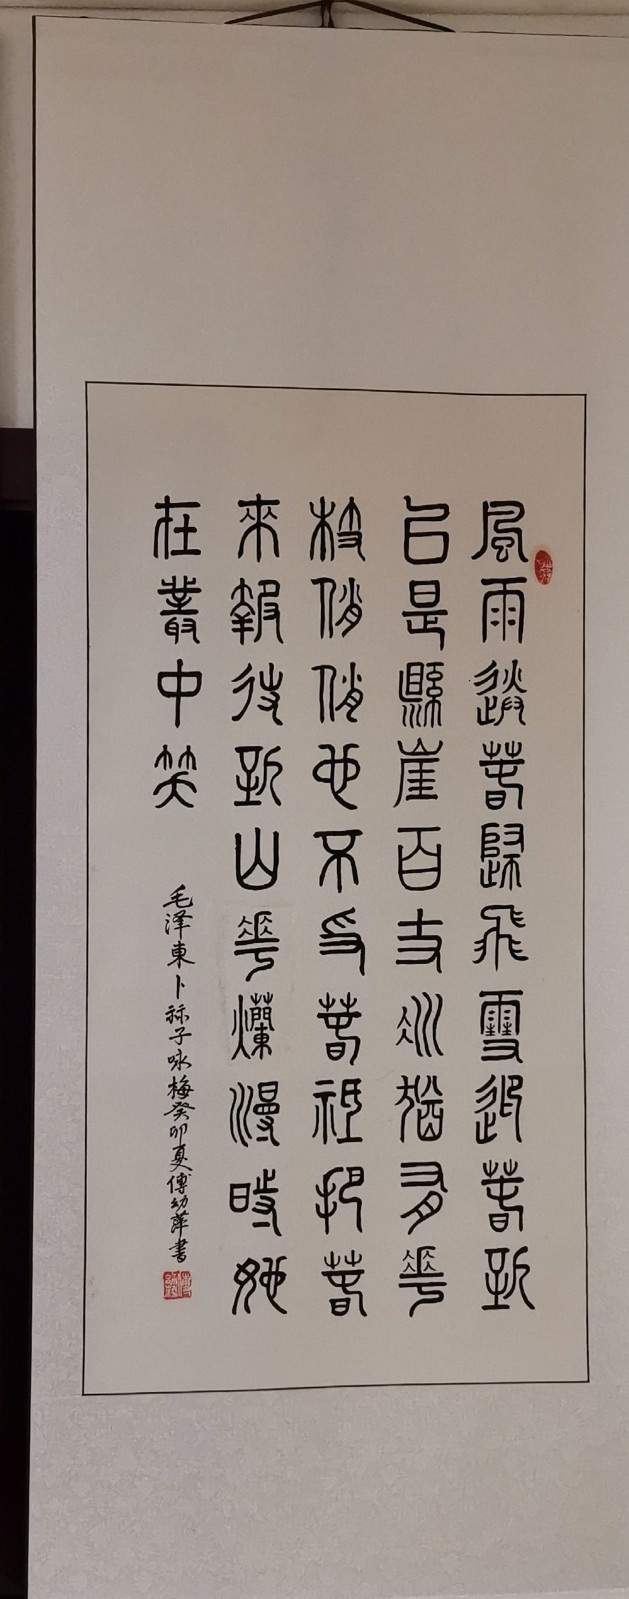 風雨送春歸飛雪迎春到
已是懸崖百丈冰猶有花
枝俏俏也不爭春祇把春
來報待到山花爛漫時她
在叢中笑
毛泽東卜祘子咏梅癸卯夏傅幼萍書